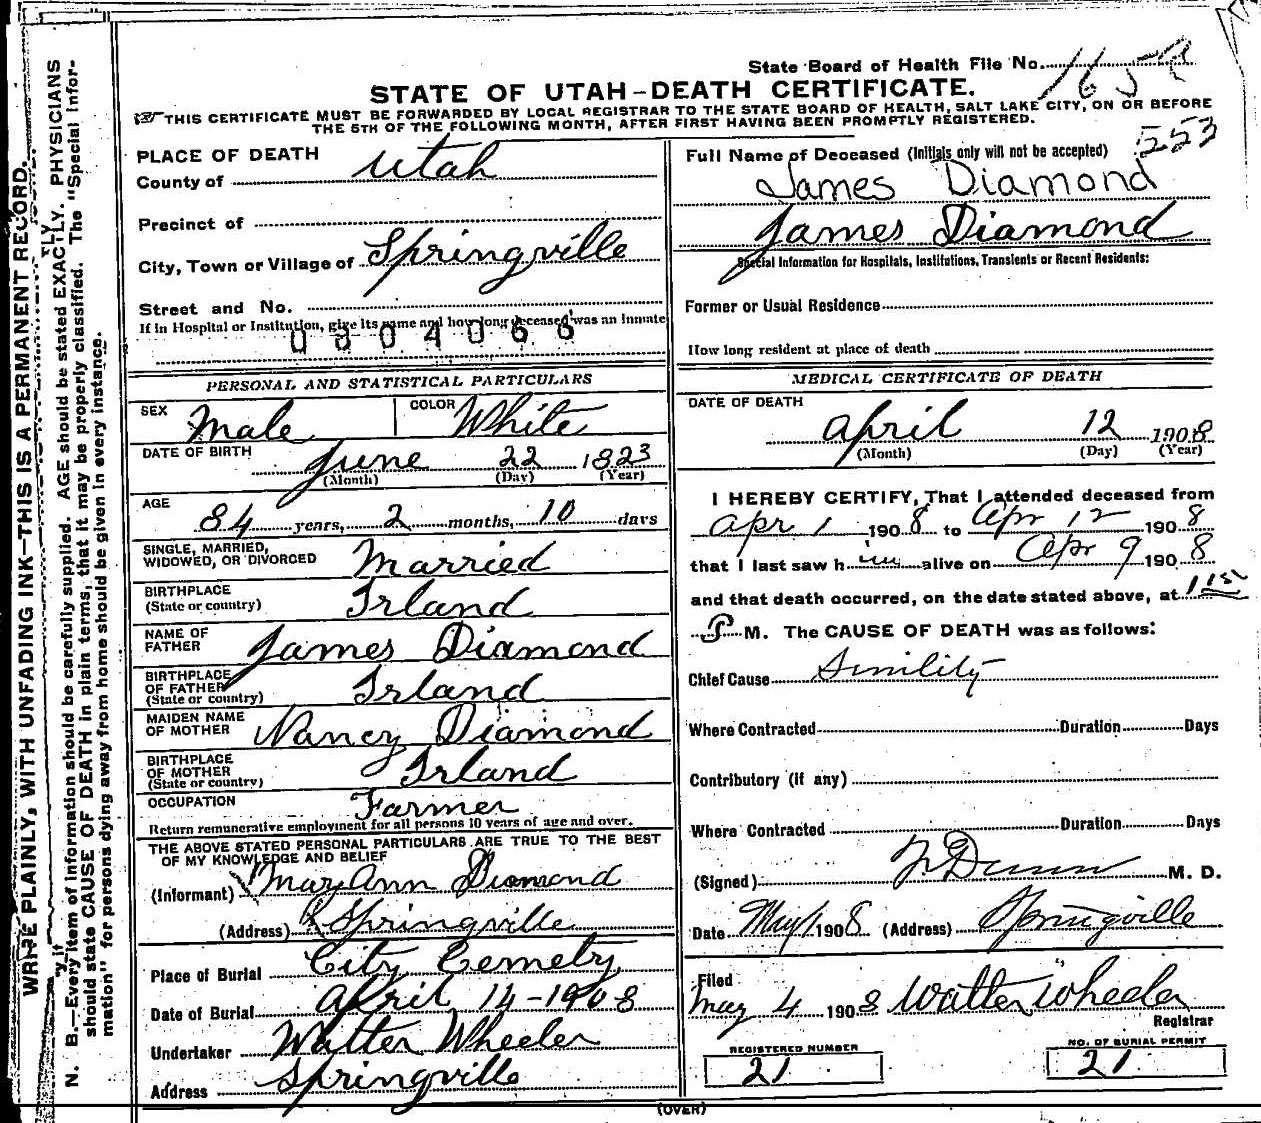 State Board of Health File No. 165
STATE OF UTAH-DEATH CERTIFICATE.
THIS CERTIFICATE MUST BE FORWARDED BY LOCAL REGISTRAR TO THE STATE BOARD OF HEALTH, SALT LAKE CITY, ON OR BEFORE
THE 5TH OF THE FOLLOWING MONTH, AFTER FIRST HAVING BEEN PROMPTLY REGISTERED.
553
PLACE OF DEATH
County of Utah
Precinct of
City, Town or Village of Springville
Street and No.
If in Hospital or Institution, give its name and how long deceased was an Inmate
PERSONAL AND STATISTICAL PARTICULARS
SEX Male COLOR White
DATE OF BIRTH June 22 1823
(Month) (Day) (Year)
AGE 84 years, 2 months, 10 days
SINGLE, MARRIED,
WIDOWED, OR DIVORCED Married
BIRTHPLACE
(State or country) Irland
NAME OF
FATHER James Diamond
BIRTHPLACE
OF FATHER
(State or country) Irland
MAIDEN NAME
OF MOTHER Nancy Diamond
BIRTHPLACE
OF MOTHER
(State or country) Irland
OCCUPATION Farmer
Return remunerative employment for all persons 10 years of age and over.
THE ABOVE STATED PERSONAL PARTICULARS ARE TRUE TO THE BEST
OF MY KNOWLEDGE AND BELIEF
(Informant) Mary Ann Diamond
(Address) Springville
Place of Burial City Cemetry
Date of Burial April 14-1908
Undertaker Walter Wheeler
Address Springville
Full Name of Deceased (Initials only will not be accepted)
James Diamond
James Diamond
Special Information for Hospitals, Institutions, Transients or Recent Residents:
Former or Usual Residence
How long resident at place of death
MEDICAL CERTIFICATE OF DEATH
DATE OF DEATH
April 12 1908
(Month) (Day) (Year)
I HEREBY CERTIFY, That I attended deceased from
Apr 1 1908 to Apr 12 1908
that I last saw him alive on Apr 9 1908
and that death occurred, on the date stated above, at
P M. The CAUSE OF DEATH was as follows:
Chief Cause Sinility
Where Contracted Duration Days
Contributory (if any)
Where Contracted Duration Days
(Signed) Dunn M. D.
Date May 1 1908 (Address) Springville
Filed
May 4 1908 Walter Wheeler
Registrar
REGISTERED NUMBER
21
NO. OF BURIAL PERMIT
21
(OVER)
WRITE PLAINLY, WITH UNFADING INK-THIS IS A PERMANENT RECORD.
N. B.-Every item of information should be carefully supplied. AGE should be stated EXACTLY. PHYSICIANS
should state CAUSE OF DEATH in plain terms, that it may be properly classified. The "Special Infor-
mation" for persons dying away from home should be given in every instance.